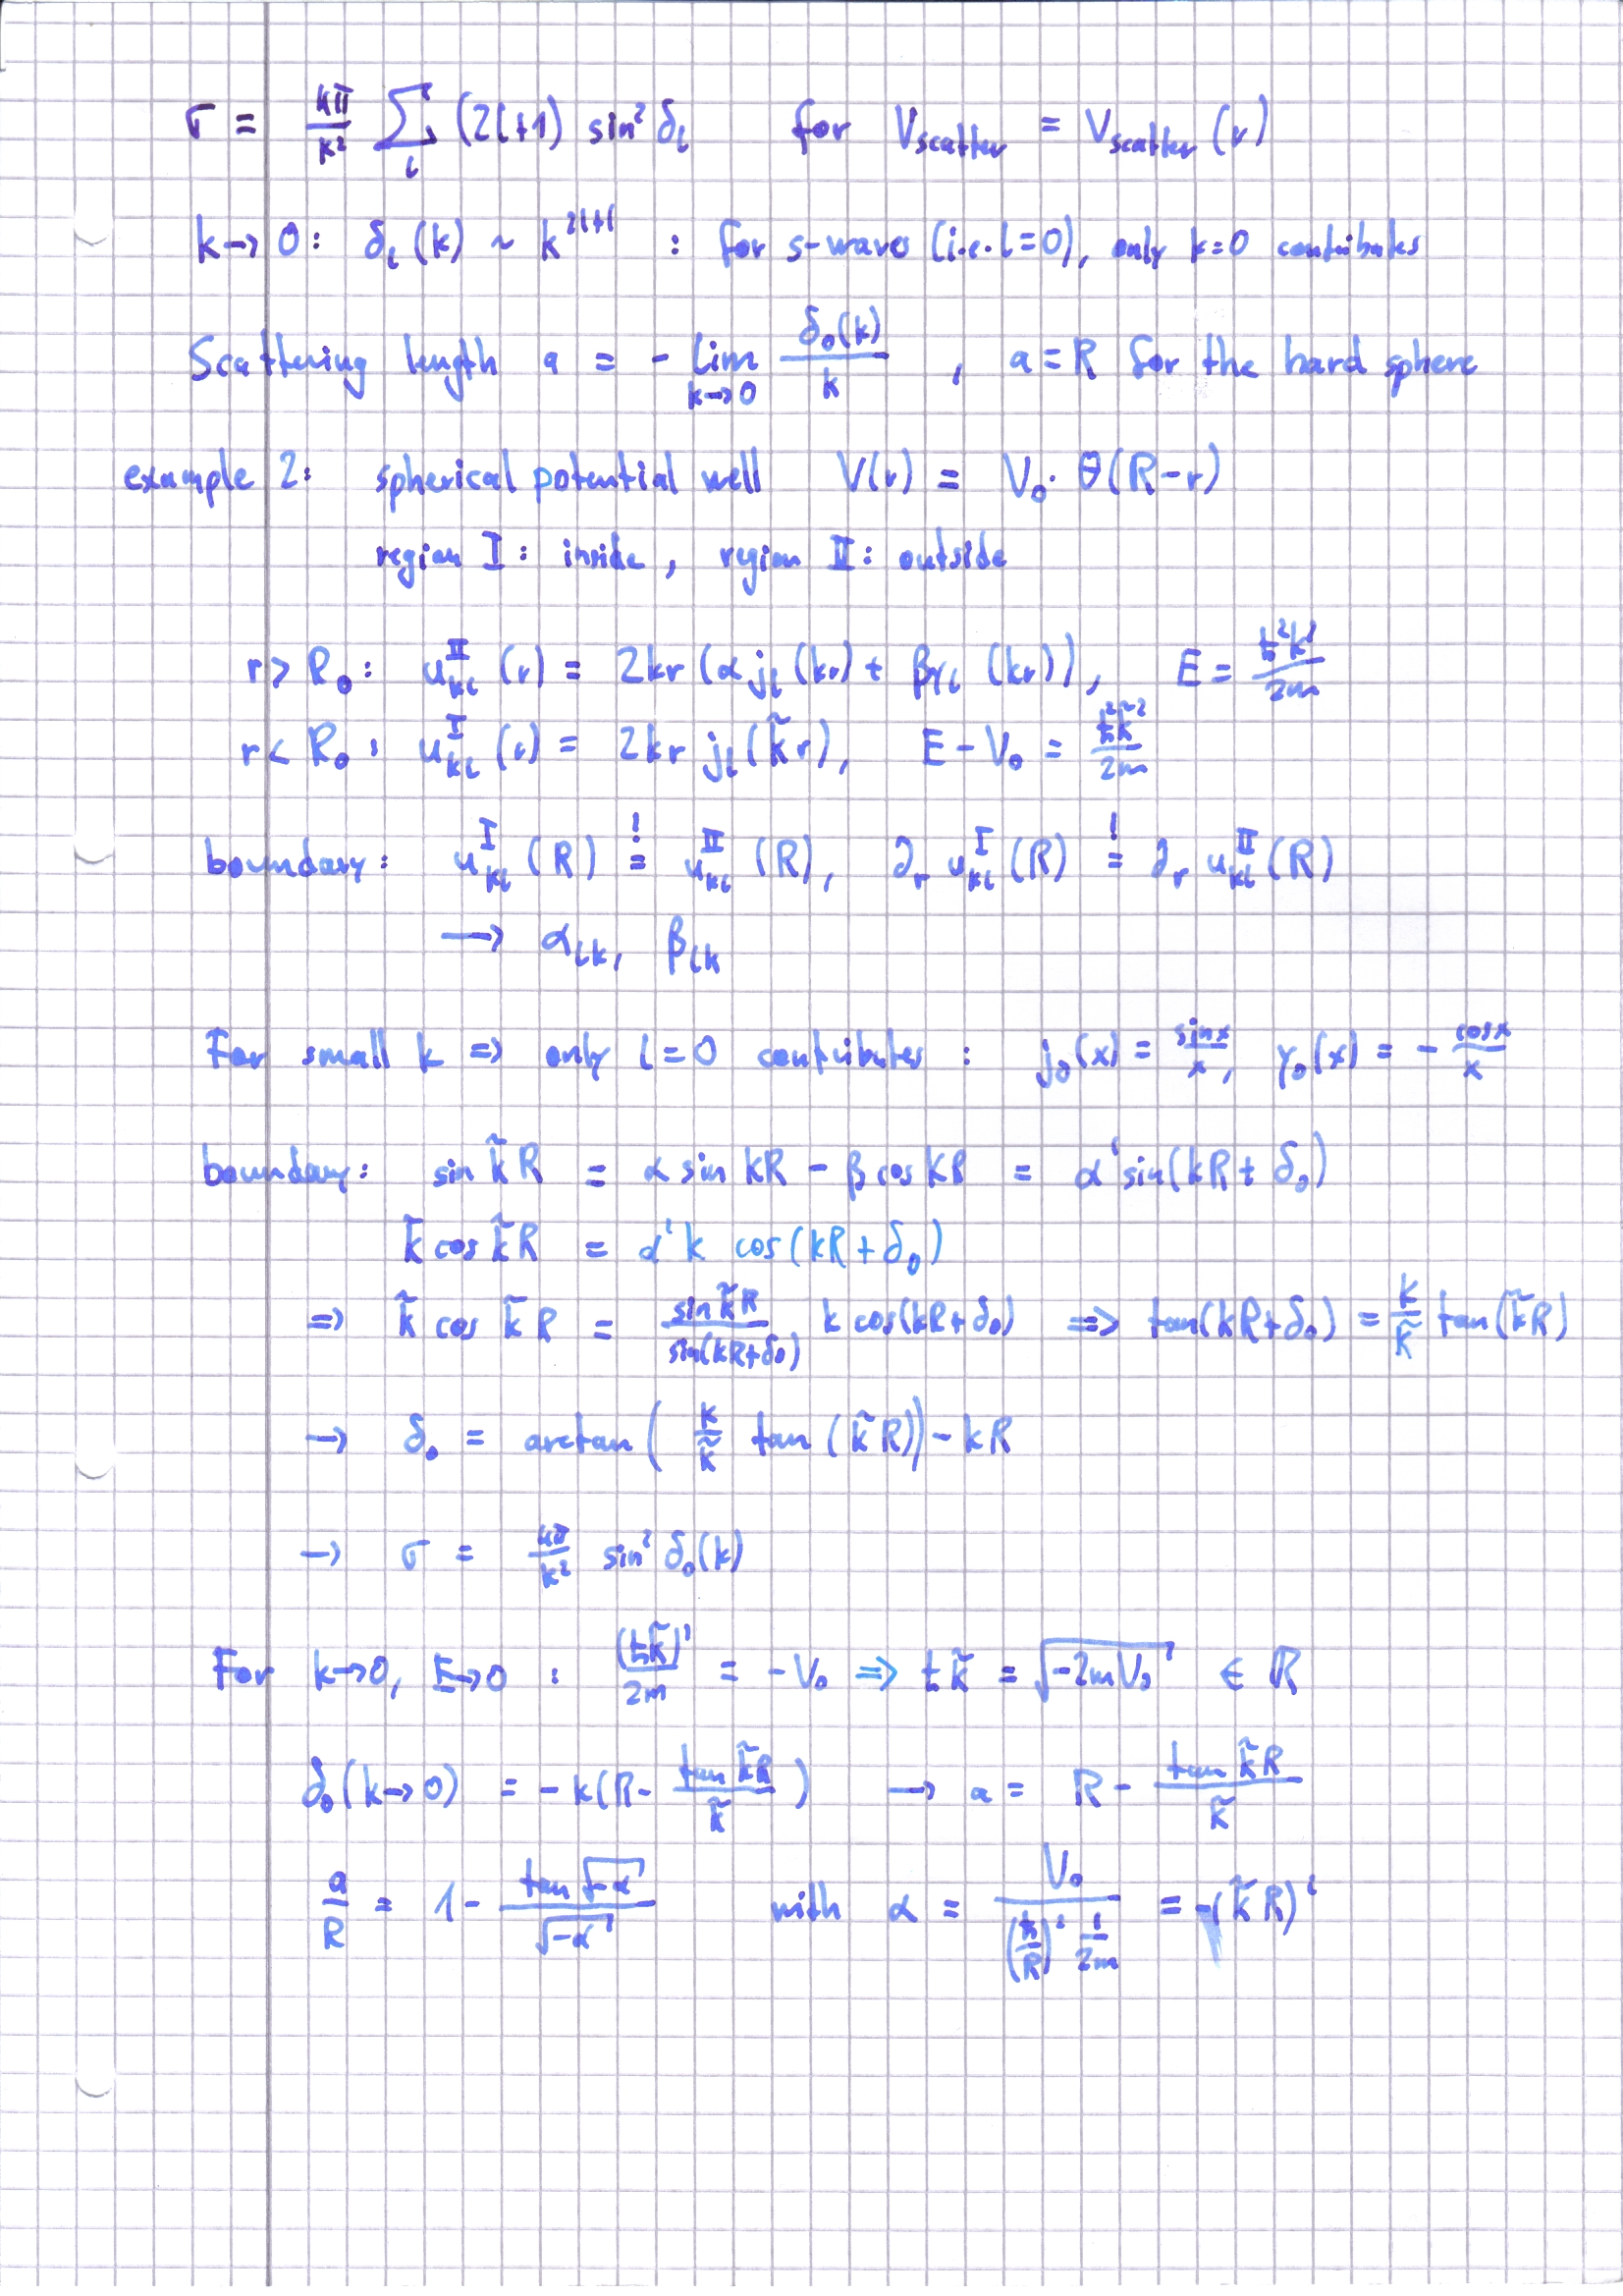 σ = 4π/k² Σ_l (2l+1) sin² δ_l for V_scatter = V_scatter (r)
k→0: δ_l (k) ~ k^{2l+1} : for s-waves (i.e. l=0), only k=0 contributes
Scattering length a = - lim_{k→0} δ₀(k)/k , a = R for the hard sphere
example 2: spherical potential well V(r) = V₀· Θ(R-r)
region I: inside, region II: outside
r > R₀: u^{II}_{kl} (r) = 2kr (α j_l (kr) + β y_l (kr)), E = ħ²k²/2m
r < R₀: u^{I}_{kl} (r) = 2kr j_l (k̃r), E - V₀ = ħ²k̃²/2m
boundary: u^{I}_{kl} (R) =! u^{II}_{kl} (R), ∂_r u^{I}_{kl} (R) =! ∂_r u^{II}_{kl} (R)
→ α_{lk}, β_{lk}
For small k ⇒ only l=0 contributes : j₀(x) = sinx/x, y₀(x) = - cosx/x
boundary: sin k̃R = α sin kR - β cos kR = α' sin(kR + δ₀)
k̃ cos k̃R = α' k cos(kR + δ₀)
⇒ k̃ cos k̃R = sin k̃R/sin(kR+δ₀) k cos(kR+δ₀) ⇒ tan(kR+δ₀) = k/k̃ tan(k̃R)
→ δ₀ = arctan( k/k̃ tan(k̃R)) - kR
→ σ = 4π/k² sin² δ₀(k)
For k→0, E→0 : (ħk̃)²/2m = -V₀ ⇒ ħk̃ = √(-2mV₀) ∈ ℝ
δ₀(k→0) = -k(R - tan k̃R/k̃) → a = R - tan k̃R/k̃
a/R = 1 - tan√(-α)/√(-α) with α = V₀/((ħ/R)² 1/2m) = -(k̃R)²